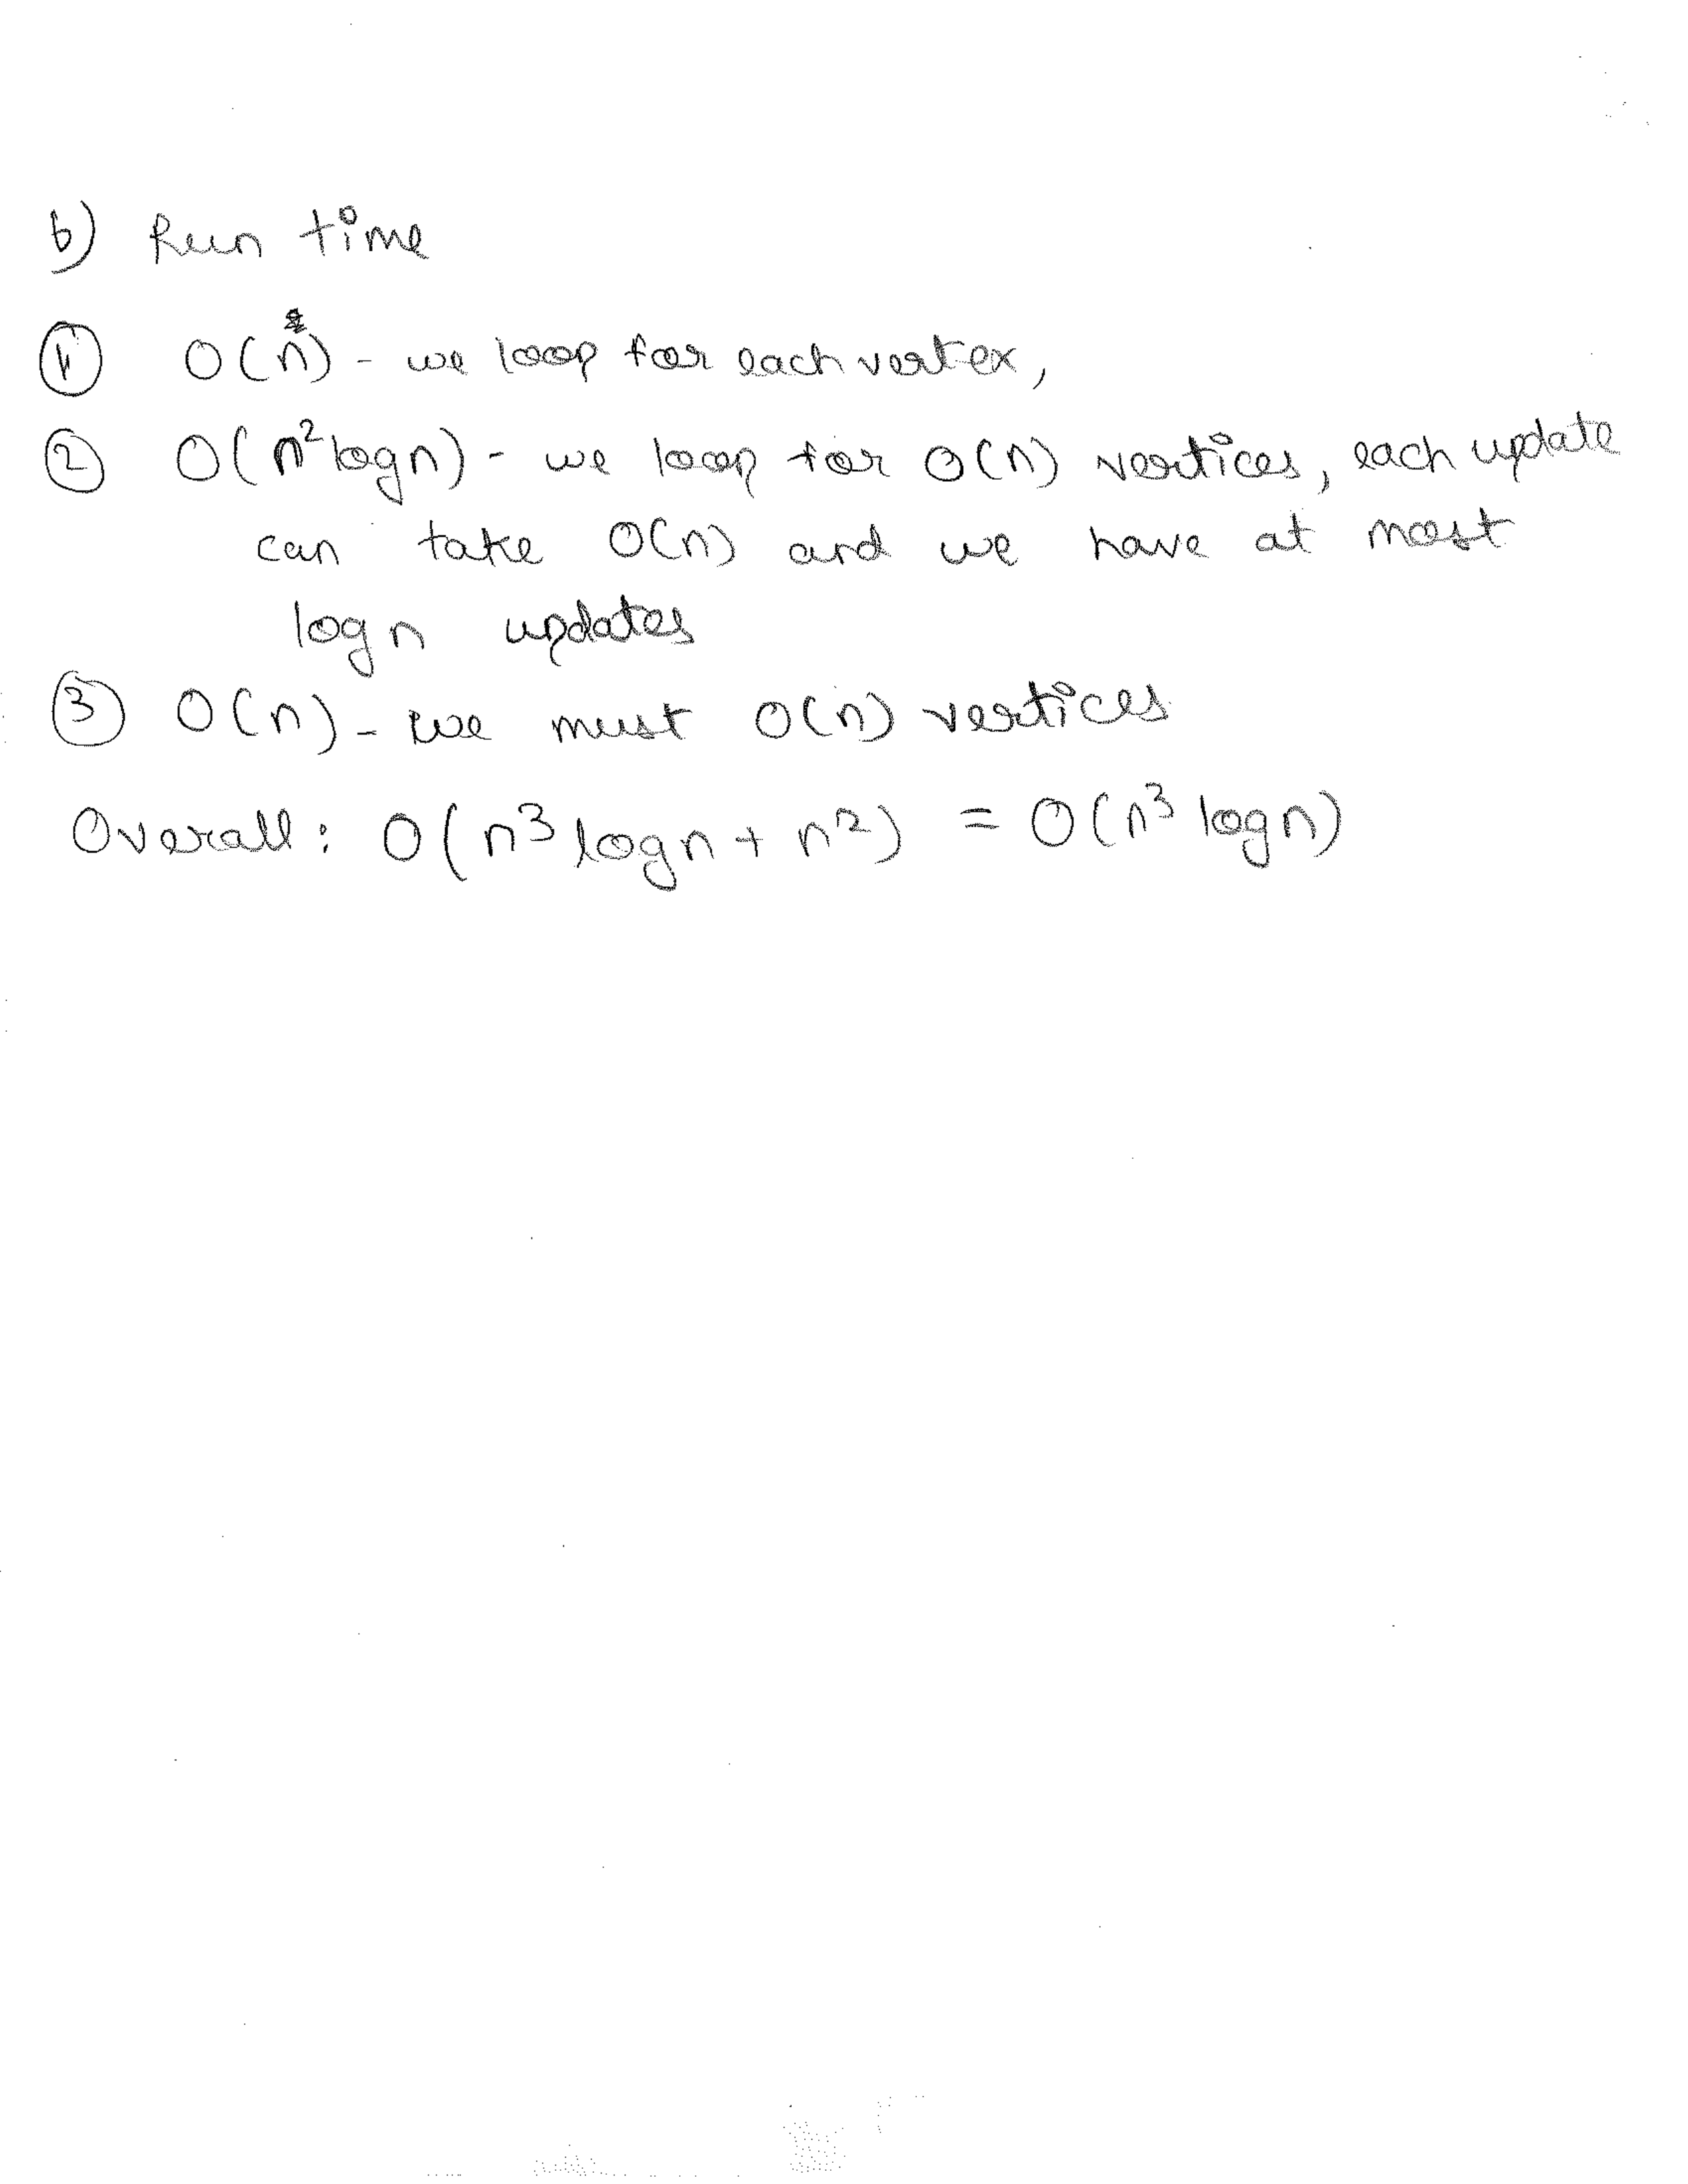 b) Run time
① O(n) - we loop for each vertex,
② O(n² log n) - we loop for O(n) vertices, each update
can take O(n) and we have at most
log n updates
③ O(n) - we must O(n) vertices
Overall: O(n³ log n + n²) = O(n³ log n)